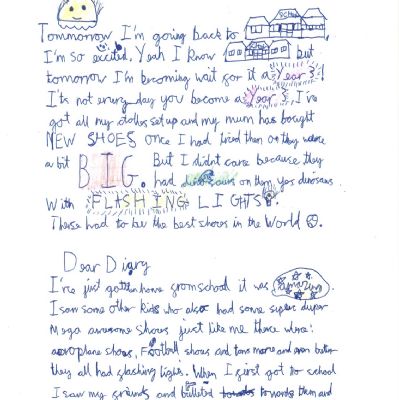 Tommorrow I'm going back to School
I'm so excited. Yeah I know but
tomorrow I'm becoming wait for it a Year 3!
It's not everyday you become a Year 3, I've
got all my clothes set up and my mum has bought
NEW SHOES once I had tried them on they were
a bit BIG. But I didn't care because they
had dinosaurs on them yes dinosaurs
With FLASHING LIGHTS.
These had to be the best shoes in the World
Dear Diary
I've just gotten home from school it was amazing
I saw some other kids who also had some super duper
Mega awesome shoes just like me there where:
aeroplane shoes, Football shoes and tons more and even better
they all had flashing lights. When I first got to school
I saw my friends and bulleted towards them and